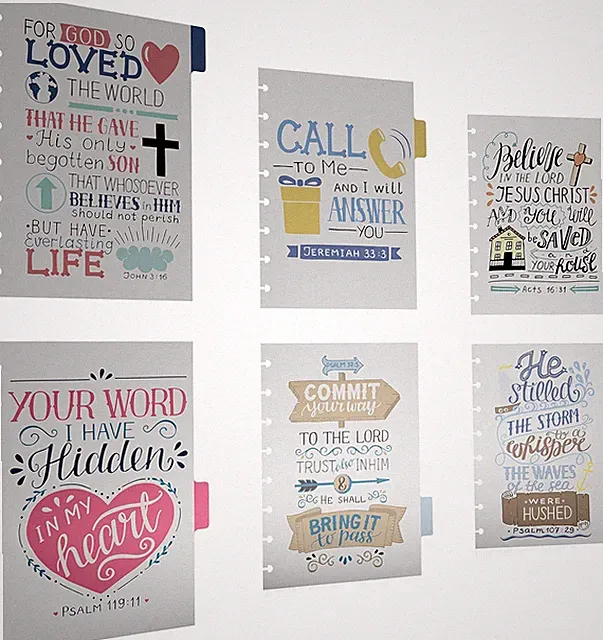 FOR GOD SO
LOVED
THE WORLD
THAT HE GAVE
His only
begotten SON
THAT WHOSOEVER
BELIEVES in HIM
should not perish
BUT HAVE
everlasting
LIFE
JOHN 3:16
CALL
TO Me
AND I will
ANSWER
YOU
JEREMIAH 33:3
Believe
IN THE LORD
JESUS CHRIST
AND YOU will
be SAVED
YOUR House
ACTS 16:31
YOUR WORD
I HAVE
Hidden
IN MY
heart
PSALM 119:11
PSALM 37:5
COMMIT
your way
TO THE LORD
TRUST also IN HIM
&
HE SHALL
BRING IT
to pass
He
stilled
THE STORM
to a
whisper
THE WAVES
of the sea
WERE
HUSHED
PSALM 107:29